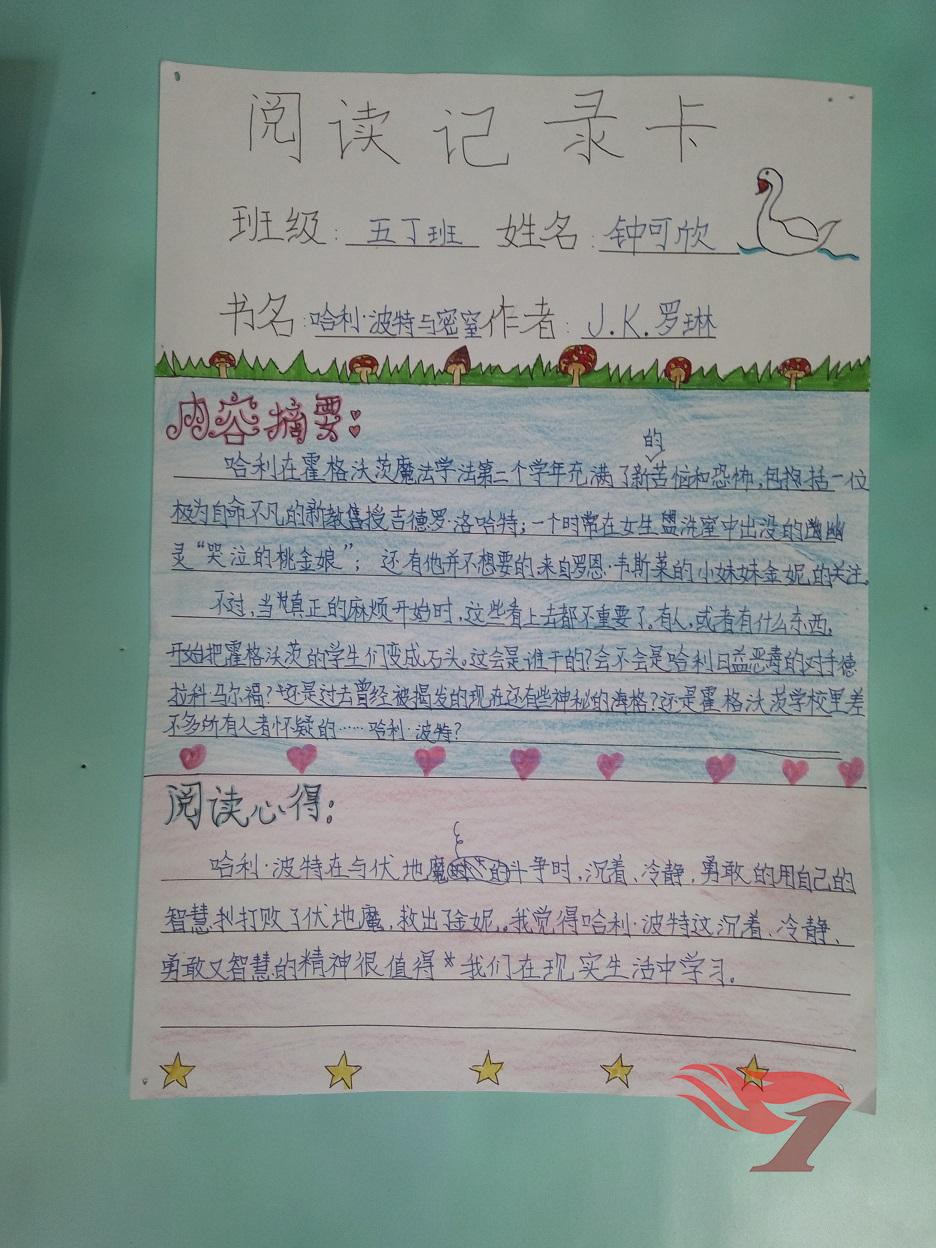 阅读记录卡
班级:五丁班 姓名:钟可欣
书名:哈利·波特与密室作者:J.K.罗琳
内容摘要:
的
哈利在霍格沃茨魔法学法第二个学年充满了新苦恼和恐怖,包括一位
极为自命不凡的新教授吉德罗·洛哈特;一个时常在女生盥洗室中出没的幽
灵“哭泣的桃金娘”;还有他并不想要的来自罗恩·韦斯莱的小妹妹金妮的关注。
不过,当真正的麻烦开始时,这些看上去都不重要了,有人,或者有什么东西,
开始把霍格沃茨的学生们变成石头。这会是谁干的?会不会是哈利日益恶毒的对手德
拉科·马尔福?还是过去曾经被揭发的现在还有些神秘的海格?还是霍格沃茨学校里差
不多所有人者怀疑的……哈利·波特?
阅读心得:
哈利·波特在与伏地魔的斗争时,沉着、冷静,勇敢的用自己的
智慧打败了伏地魔,救出了金妮。我觉得哈利·波特这沉着、冷静、
勇敢又智慧的精神很值得我们在现实生活中学习。
1